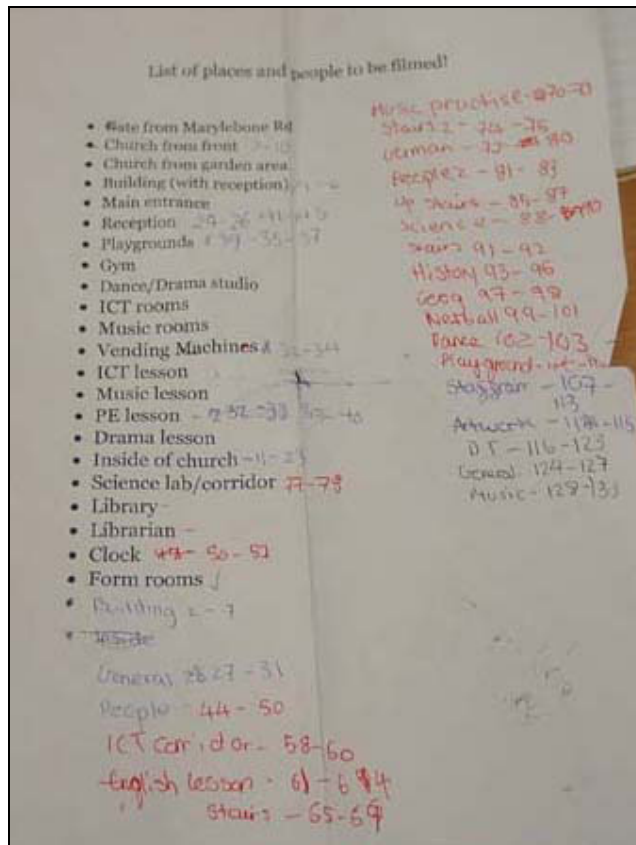 List of places and people to be filmed!
• Gate from Marylebone Rd
• Church from front
• Church from garden area
• Building (with reception)
• Main entrance
• Reception
• Playgrounds
• Gym
• Dance/Drama studio
• ICT rooms
• Music rooms
• Vending Machines
• ICT lesson
• Music lesson
• PE lesson
• Drama lesson
• Inside of church
• Science lab/corridor 77-79
• Library -
• Librarian -
• Clock 50-57
• Form rooms
• Building 2-7
• inside
General 27-31
People 44-50
ICT corridor - 58-60
English lesson - 61-64
Stairs - 65-69
Music practise - 70-73
Stairs 2 - 74-75
German - 80
People 2 - 81-83
up stairs - 85-87
Science - 88-
Stairs 91-92
History 93-96
Geog 97-98
Netball 99-101
Dance 102-103
Playground
- 107-
113
Artwork - 115
DT - 116-123
General 124-127
Music - 128-133